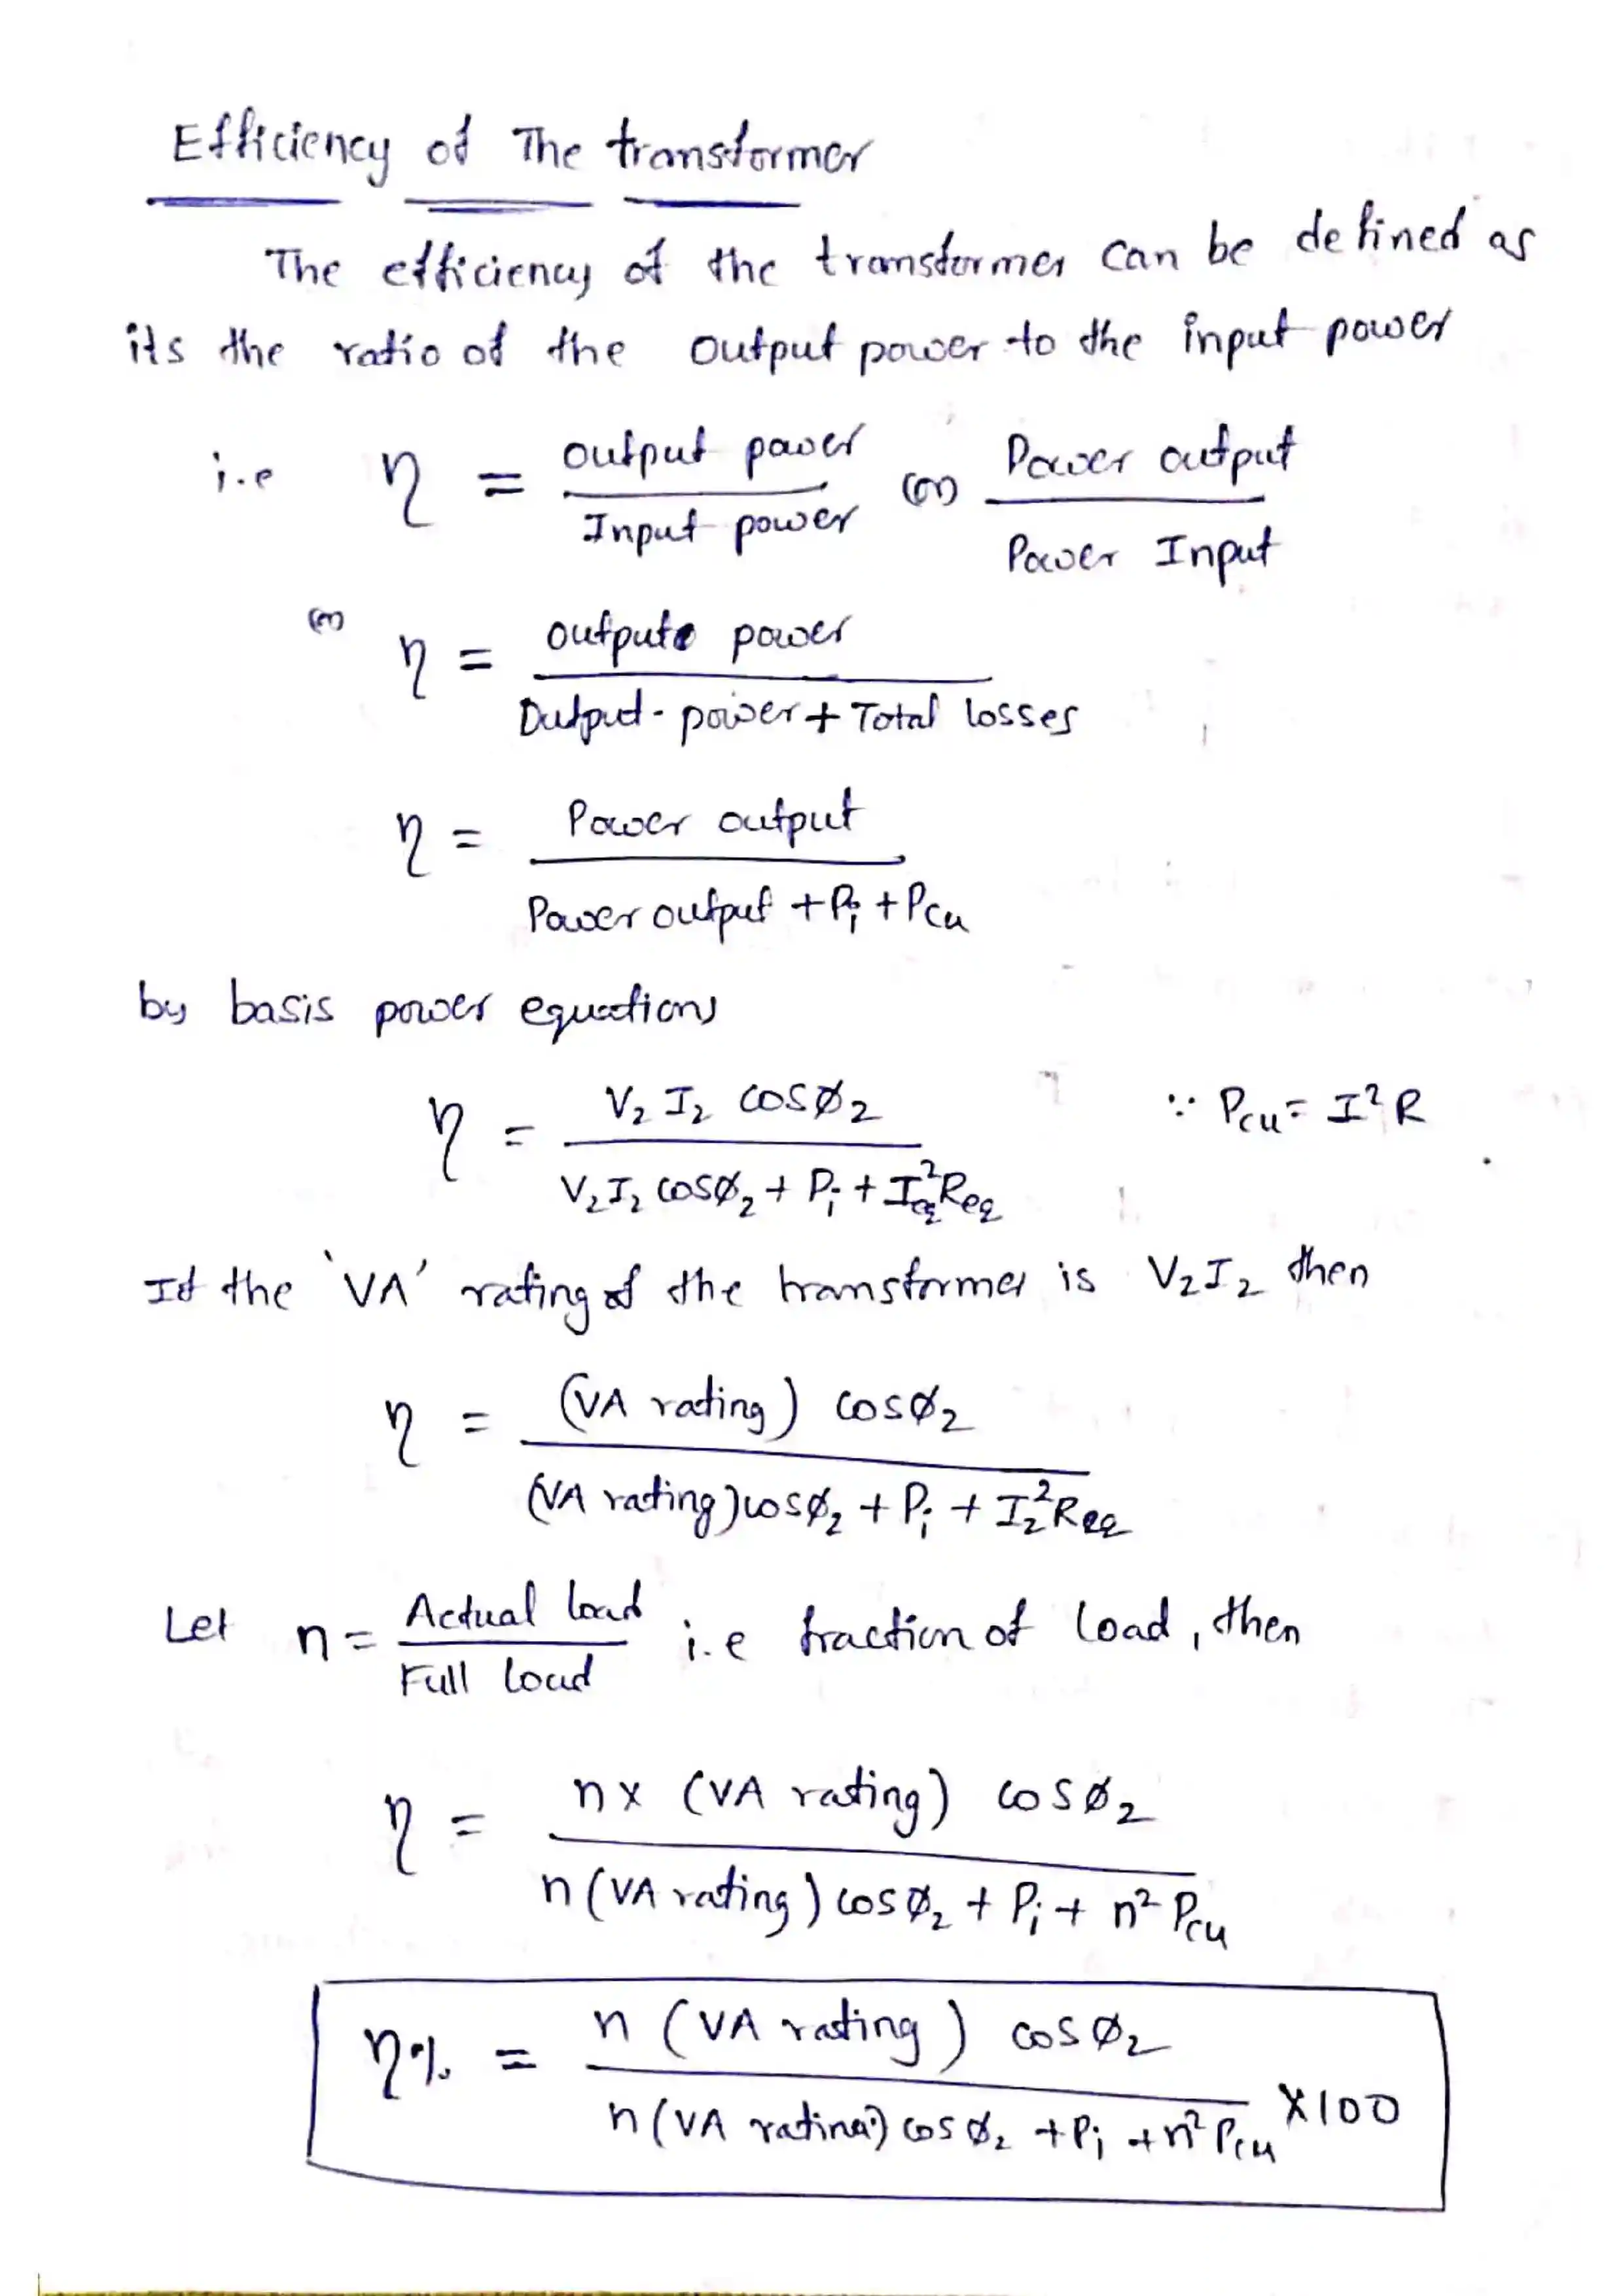 Efficiency of The transformer
The efficiency of the transformer can be defined as
its the ratio of the output power to the input power
i.e η = output power / Input power (or) Power output / Power Input
(or) η = output power / Output power + Total losses
η = Power output / Power output + Pi + Pcu
by basis power equations
η = V₂ I₂ cosø₂ / V₂ I₂ cosø₂ + Pi + I²Req ∵ Pcu = I²R
If the 'VA' rating of the transformer is V₂I₂ then
η = (VA rating) cosø₂ / (VA rating) cosø₂ + Pi + I₂²Req
Let n = Actual load / Full load i.e fraction of load, then
η = n x (VA rating) cosø₂ / n (VA rating) cosø₂ + Pi + n² Pcu
η% = n (VA rating) cosø₂ / n (VA rating) cosø₂ + Pi + n² Pcu X100